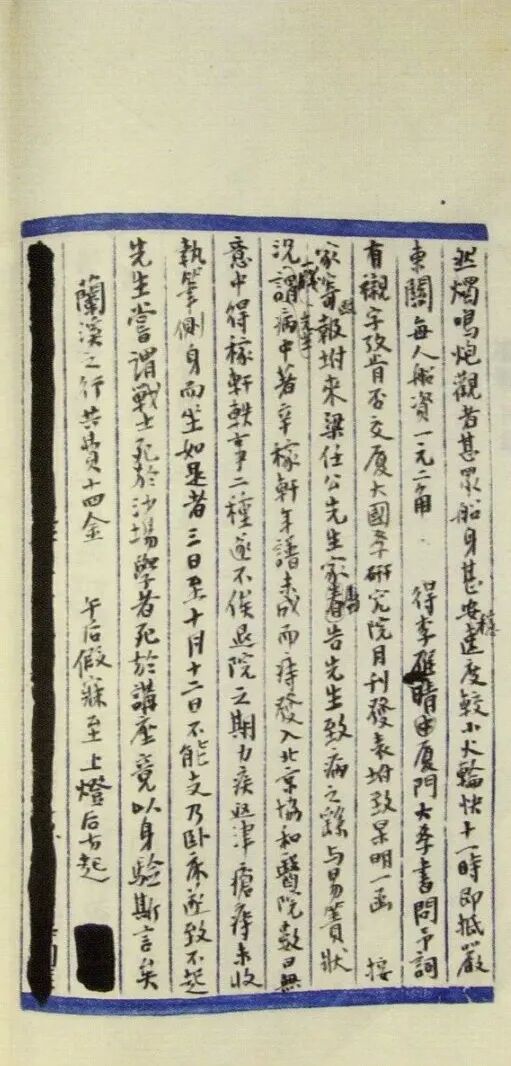 然燭鳴炮觀者甚眾船身甚安穩速度較小火輪快十一時即抵嚴
東關每人船資一元二角 得李雁晴由廈門大學書問予詞
有襯字攷肯否交廈大國學研究院月刊發表坿致杲明一函 接
家寄回報坿來梁任公先生家屬告先生致病之繇與易簀狀
況謂病中著辛稼軒年譜未成而痔發入北京協和醫院數日無
意中得稼軒軼事二種遂不俟退院之期力疾返津瘡痔未收
執筆側身而坐如是者三日至十月十二日不能支乃臥床遂致不起
先生嘗謂戰士死於沙場學者死於講座竟以身驗斯言矣
蘭溪之行共費十四金 午后假寐至上燈后方起